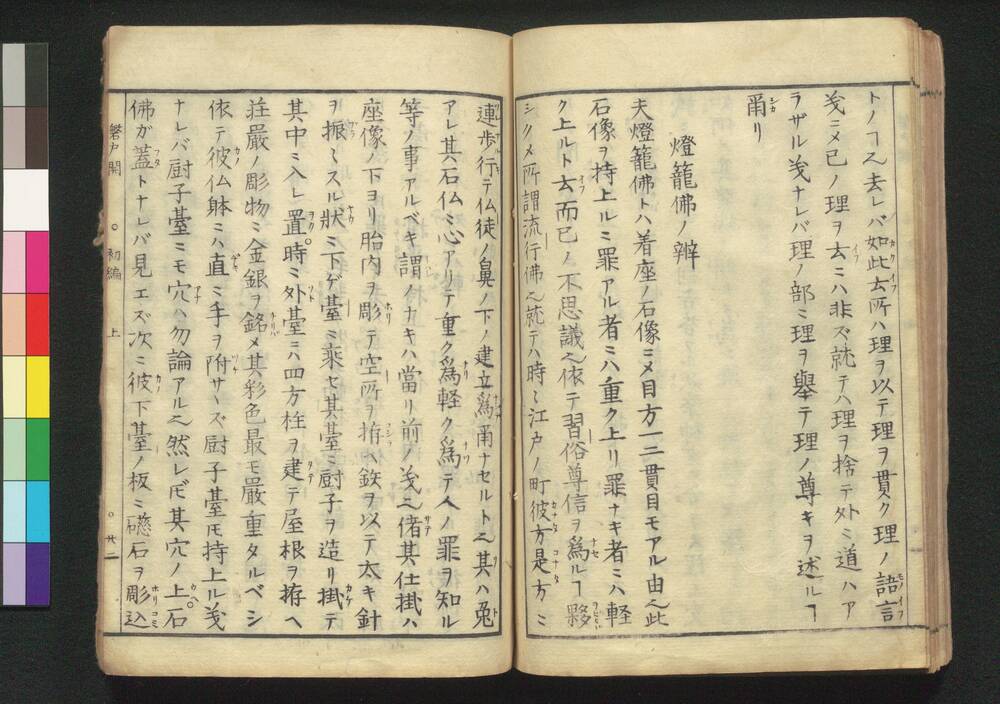 トノヿ之去レバ如此云所ハ理ヲ以テ理ヲ貫ク理ノ語言
戔ニメ已ノ理ヲ云ニハ非ズ就テハ理ヲ捨テ外ミ道ハア
ラザル戔ナレバ理ノ部ミ理ヲ舉テ理ノ尊キヲ述ルヿ
爾リ
燈籠佛ノ辨
夫燈籠佛トハ着座ノ石像ニメ目方一二貫目モアル由之此
石像ヲ持上ルミ罪アル者ミハ重ク上リ罪ナキ者ミハ軽
ク上ルト云而已ノ不思議之依テ習俗尊信ヲ為ルヿ夥
シクメ所謂流行佛之就テハ時〻江戸ノ町彼方是方ミ
連歩行テ仏徒ノ鼻ノ下ノ建立為爾ナセルト之其ハ兎
アレ其石仏ミ心アリテ重ク為軽ク為テ人ノ罪ヲ知ル
等ノ事アルベキ謂ノナキハ當リ前ノ戔之偖其仕掛ハ
座像ノ下ヨリ胎内ヲ彫テ空所ヲ拵ヘ鉄ヲ以テ太キ針
ヲ振〻スル状ミ下ゲ臺ミ乗セ其臺ミ厨子ヲ造リ掛テ
其中ミ入レ置。時ミ外臺ミハ四方柱ヲ建テ屋根ヲ拵ヘ
荘嚴ノ彫物ミ金銀ヲ鋊メ其彩色最モ嚴重タルベシ
依テ彼仏躰ミハ直ミ手ヲ附サヽズ厨子臺𪜈持上ル戔
ナレバ厨子臺ミモ穴ハ勿論アル之然レ𪜈其穴ノ上。石
佛ガ蓋トナレバ見エズ次ミ彼下臺ノ板ミ磁石ヲ彫込
磐戸開 ○初編 上 ○廿二